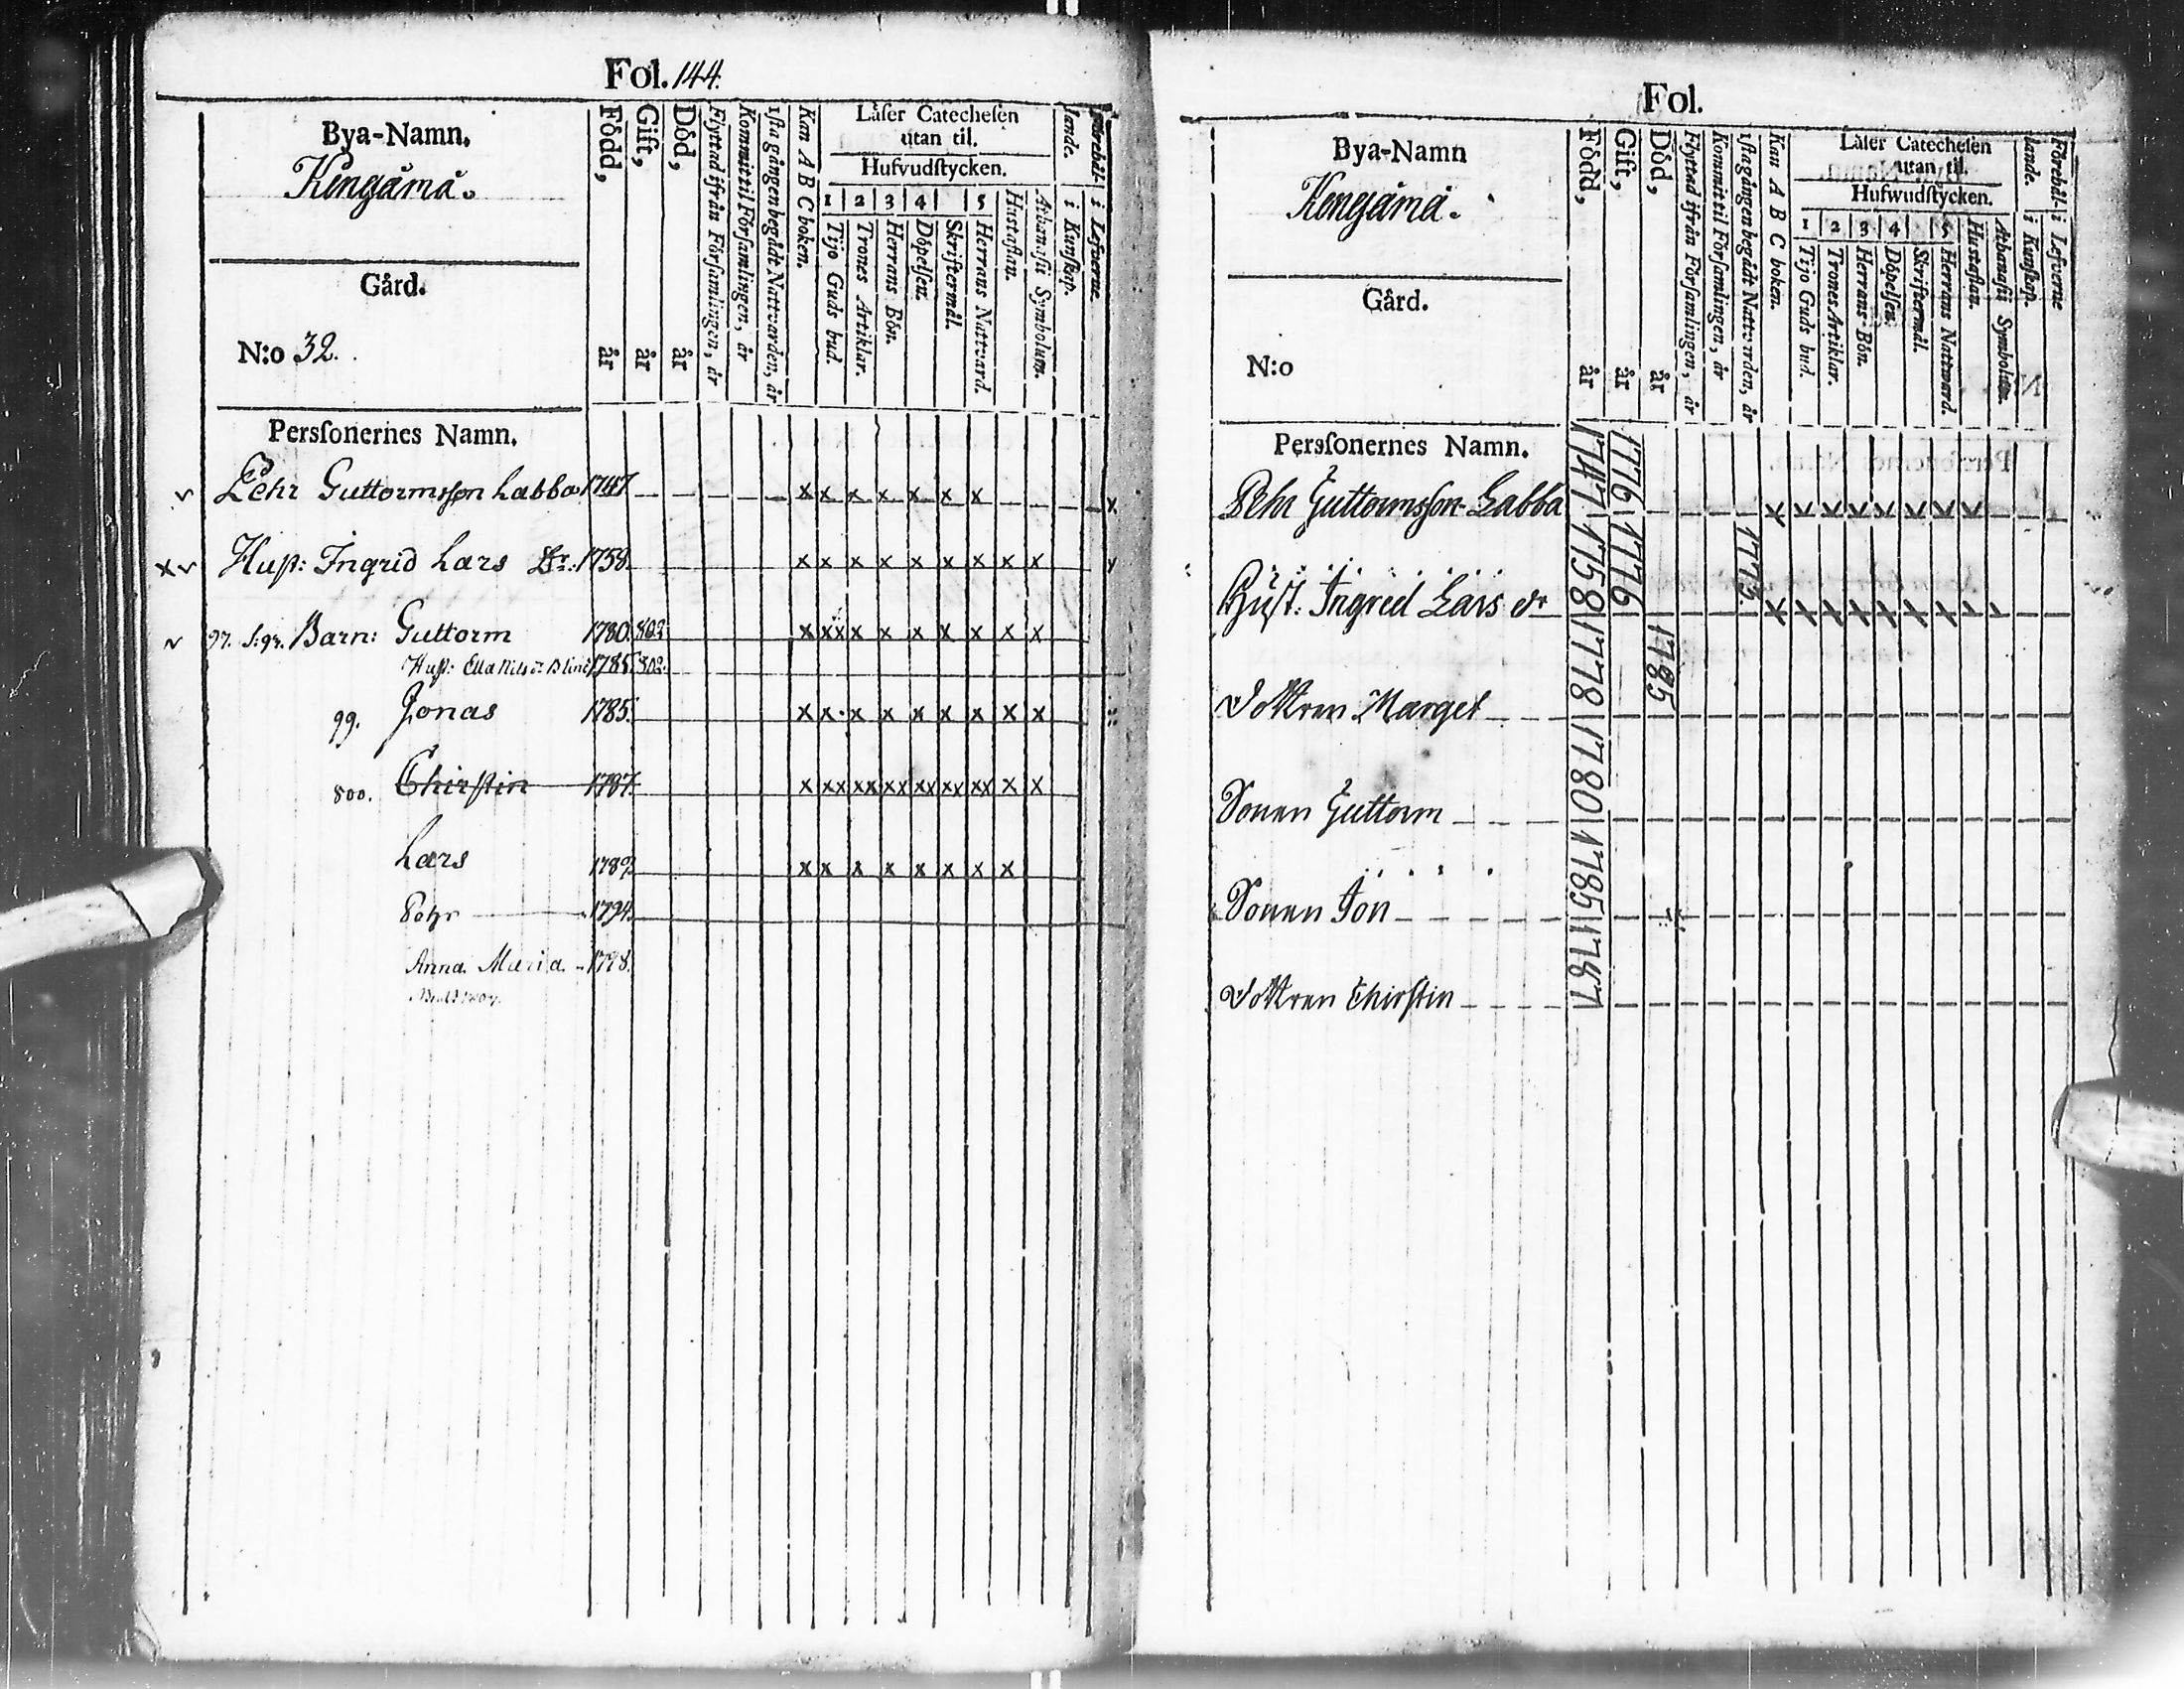 Fol. 144.
Bya-Namn.
Kengämä.
Gård.
N:o 32.
Persſonernes Namn.
Född, år
Gift, år
Död, år
Flyttad ifrån Förſamlingen, år
Kommit til Förſamlingen, år
1ſta gången begådt Nattvarden, år
Kan A B C boken.
Läſer Catecheſen
utan til.
Hufvudſtycken.
1 2 3 4 5
Tijo Guds bud.
Trones Artiklar.
Herrans Bön.
Döpelſen.
Skriftermål.
Herrans Nattvard.
Huſtaflan.
Athanaſii Symbolum.
Förehål-
lande.
i Kunſkap.
i Lefverne
v Pehr Guttormsſon Labba 1747 x x x x x x x x
x v Huſt: Ingrid Lars Dr: 1758. x x x x x x x x x
v 97. Barn: Guttorm 1780. 802. x x x x x x x x x x
Huſt: Ella Nils Dr 1785. 802.
99. Jonas 1785. x x x x x x x x x
800. Chirſtin 1787. x xx xx xx xx xx xx x x
Lars 1789. x x x x x x x x
Pehr 1794.
Anna Maria 1798.
Fol.
Bya-Namn
Kengämä.
Gård.
N:o
Persſonernes Namn.
Född, år
Gift, år
Död, år
Flyttad ifrån Förſamlingen, år
Kommit til Förſamlingen, år
1ſta gången begådt Nattvarden, år
Kan A B C boken.
Läſer Catecheſen
utan til.
Hufwudſtycken.
1 2 3 4 5
Tijo Guds bud.
Trones Artiklar.
Herrans Bön.
Döpelſen.
Skriftermål.
Herrans Nattward.
Huſtaflan.
Athanaſii Symbolum.
Förehål-
lande.
i Kunſkap.
i Lefverne
Pehr Guttormsſon Labba 1747 1776 x x x x x x x x
Huſt. Ingrid Lars dr 1758 1776 1773. x x x x x x x
Dottren Marget 1778 1785
Sonen Guttorm 1780
Sonen Jon 1785
Dottren Chirſtin 1787